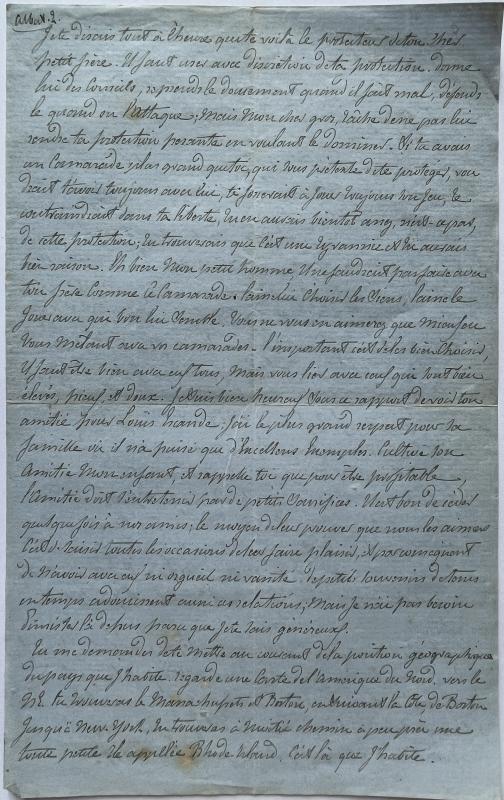 Albert. 2.
Je te disais tout à l'heure que te voilà le protecteur de ton très
petit frère. Il faut user avec discrétion de ta protection. donne
lui des Conseils, reprends le doucement quand il fait mal, défends
le quand on l'attaque; mais mon cher gros, tâche de ne pas lui
rendre ta protection pesante en voulant le dominer. Si tu avais
un Camarade plus grand que toi, qui sous prétexte de te protéger, vou
drait t'avoir toujours avec lui, te forcerait à jouer toujours son jeu, te
contraindrait dans ta liberté, tu en aurais bientôt assez, n'est-ce pas,
de cette protection; tu trouverais que c'est une tyrannie et tu aurais
bien raison. Eh bien mon petit homme il ne faudrait pas faire avec
ton frère comme le Camarade. laisse lui choisir les siens, laisse le
jouer avec qui bon lui semble. Vous ne vous en aimerez que mieux en
vous mêlant avec vos camarades. l'important c'est de les bien choisir,
il faut être bien avec eux tous, mais vous lier avec ceux qui sont bien
élevés, pieux, et doux. Je suis bien heureux sous ce rapport de voir ton
amitié pour Louis : j'ai le plus grand respect pour sa
famille où il n'a puisé que d'excellens exemples. Cultive son
amitié mon enfant, et rappelle toi que pour être profitable,
l'amitié doit s'entretenir par de petits sacrifices. Il est bon de céder
quelquefois à nos amis; le moyen de leur prouver que nous les aimons
c'est de saisir toutes les occasions de leur faire plaisir, et par conséquent
de n'avoir avec eux ni orgueil ni vanité. de petits souvenirs de tems
en temps adoucissent aussi ces relations; mais je n'ai pas besoin
d'insister là dessus parce que je te sais généreux.
Tu me demandes de te mettre au courant de la position géographique
du pays que j'habite. regarde une Carte de l'amérique du Nord, vers le
NE. tu trouveras le Massachusets et Boston, en suivant la Côte de Boston
jusqu'à New-York, tu trouveras à moitié chemin à peu près une
toute petite île appellée Rhode Island. C'est là que j'habite.